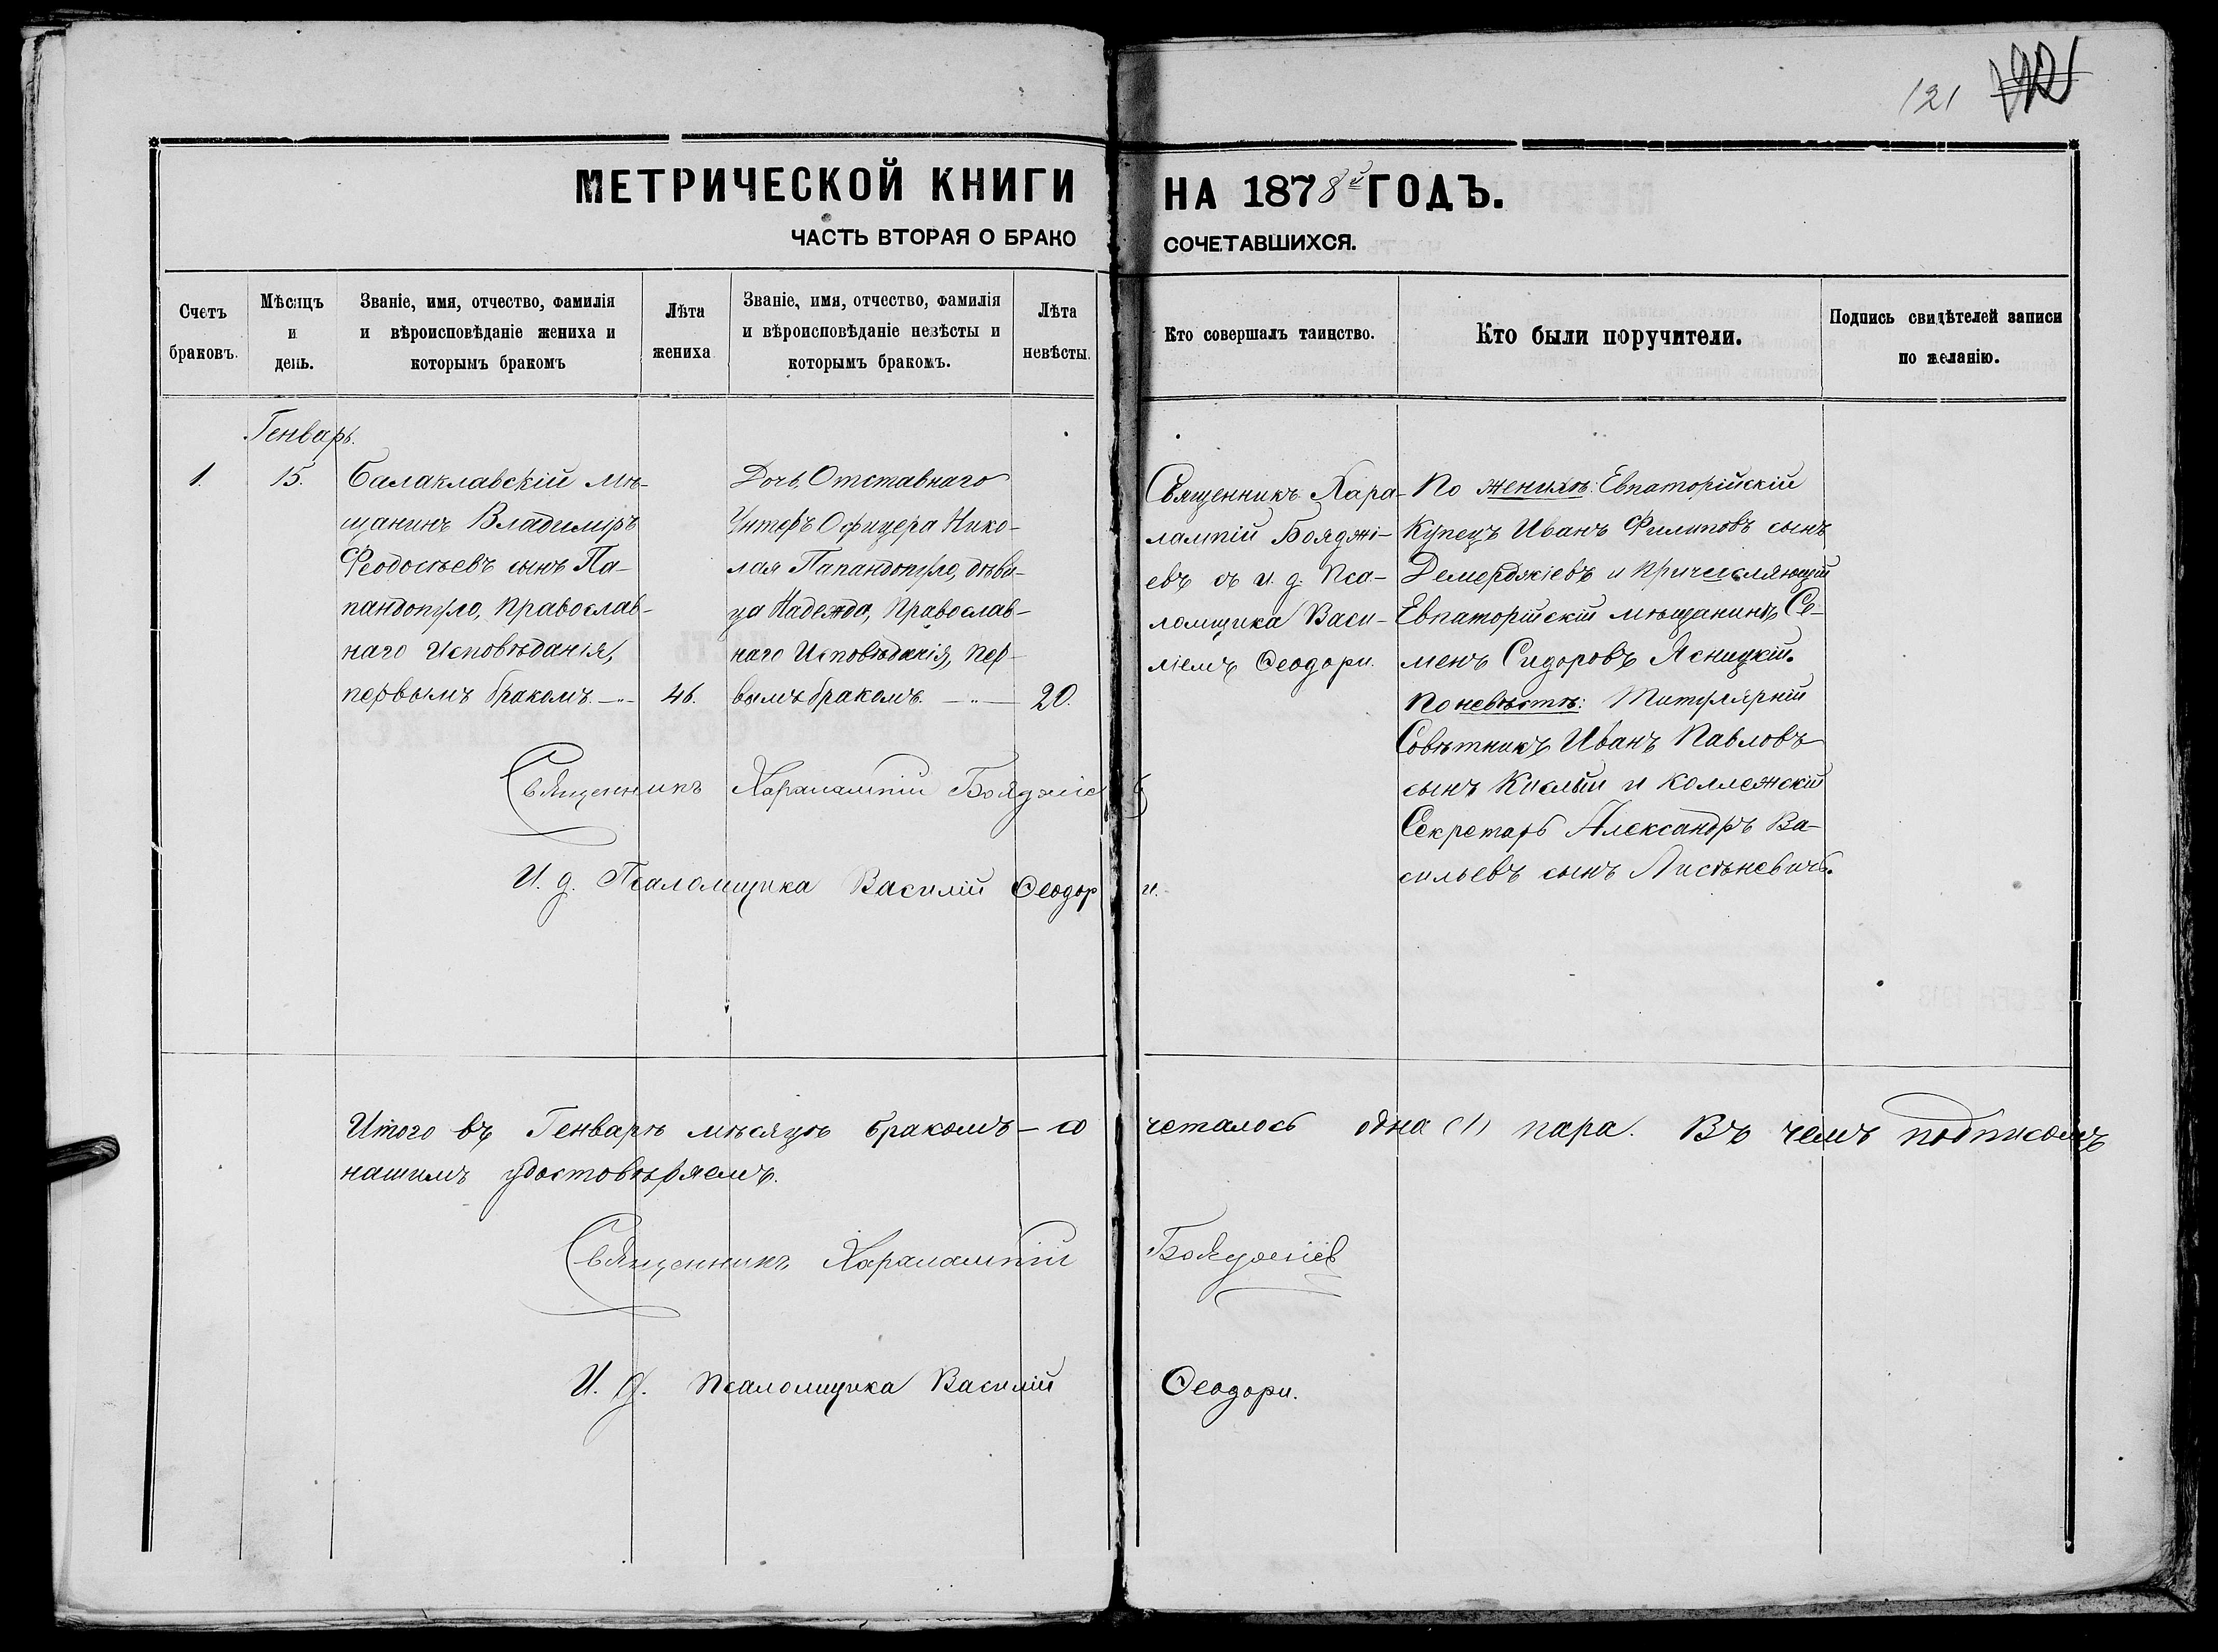 121
МЕТРИЧЕСКОЙ КНИГИ НА 1878й ГОДЪ.
ЧАСТЬ ВТОРАЯ О БРАКОСОЧЕТАВШИХСЯ.
Счетъ
браковъ.
Мѣсяцъ
и
день.
Званіе, имя, отчество, фамилія
и вѣроисповѣданіе жениха и
которымъ бракомъ
Лѣта
жениха
Званіе, имя, отчество, фамилія
и вѣроисповѣданіе невѣсты и
которымъ бракомъ.
Лѣта
невѣсты.
Кто совершалъ таинство.
Кто были поручители.
Подпись свидѣтелей записи
по желанію.
Генварь.
1.
15.
Балаклавскій мѣ-
щанинъ Владиміръ
Феодосьевъ сынъ Па-
пандопуло, Православ-
наго Исповѣданія,
первымъ бракомъ.
46.
Дочь Отставнаго
Унтеръ Офицера Нико-
лая Папандопуло, дѣви-
ца Надежда, Православ-
наго Исповѣданія, пер-
вымъ бракомъ.
20.
Священникъ Хара-
лампій Бояджі-
евъ съ и. д. Пса-
ломщика Васи-
ліемъ Ѳеодори.
По женихѣ: Евпаторійскій
Купецъ Иванъ Филиповъ сынъ
Демерджіевъ и причисляющій
Евпаторійскій мѣщанинъ Се-
менъ Сидоровъ Ясницкій.
По невѣстѣ: Титулярній
Совѣтникъ Иванъ Павловъ
сынъ Кислый и Коллежскій
Секретарь Александръ Ва-
сильевъ сынъ Листьневичъ.
Священникъ Харалампій Бояджіевъ
И. д. Псаломщика Василій Ѳеодори.
Итого въ Генварѣ мѣсяцѣ бракомъ – сочеталось одна (1) пара. Въ чемъ подписомъ
нашимъ удостовѣряемъ.
Священникъ Харалампій Бояджіевъ
И. д. Псаломщика Василій Ѳеодори.